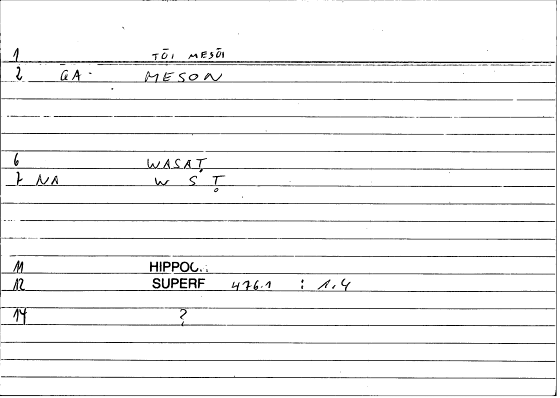 1 TŌI MESŌI
2 GA· MESON
6 WASAṬ
7 NA W S Ṭ
11 HIPPOC.
12 SUPERF 476.1 : 1.4
14 ?